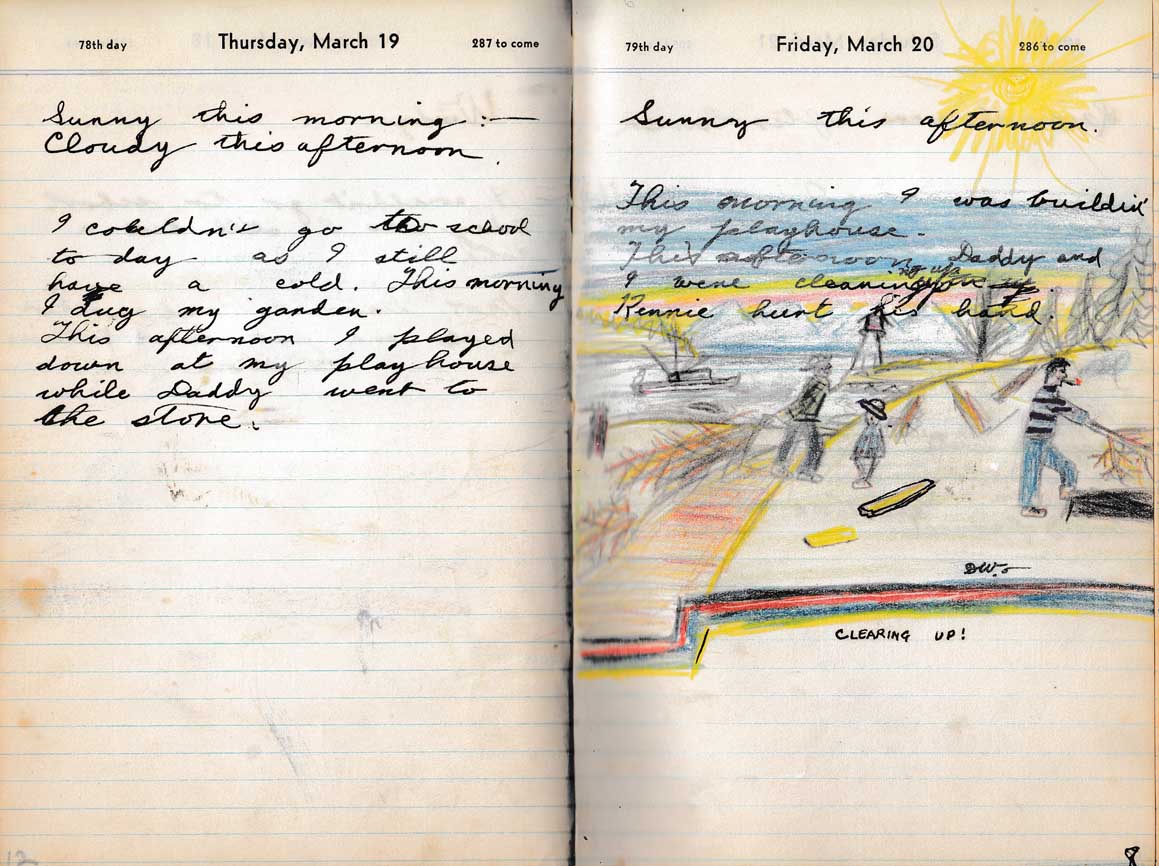 78th day Thursday, March 19 287 to come
Sunny this morning :—
Cloudy this afternoon.
I couldn't go to school
to day as I still
have a cold. This morning
I dug my garden.
This afternoon I played
down at my playhouse
while Daddy went to
the store.
79th day Friday, March 20 286 to come
Sunny this afternoon.
This morning I was buildin'
my playhouse.
This afternoon Daddy and
I were cleaning up
Kennie hurt his hand.
DW.
CLEARING UP!
12
8